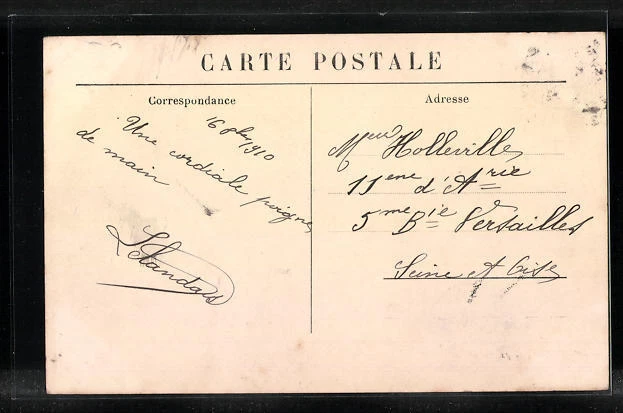 CARTE POSTALE
Correspondance
Adresse
16 8bre 1910
Une cordiale poignée
de main
Mr Holleville
11eme d'Arie
5me Bie Versailles
Seine et Oise